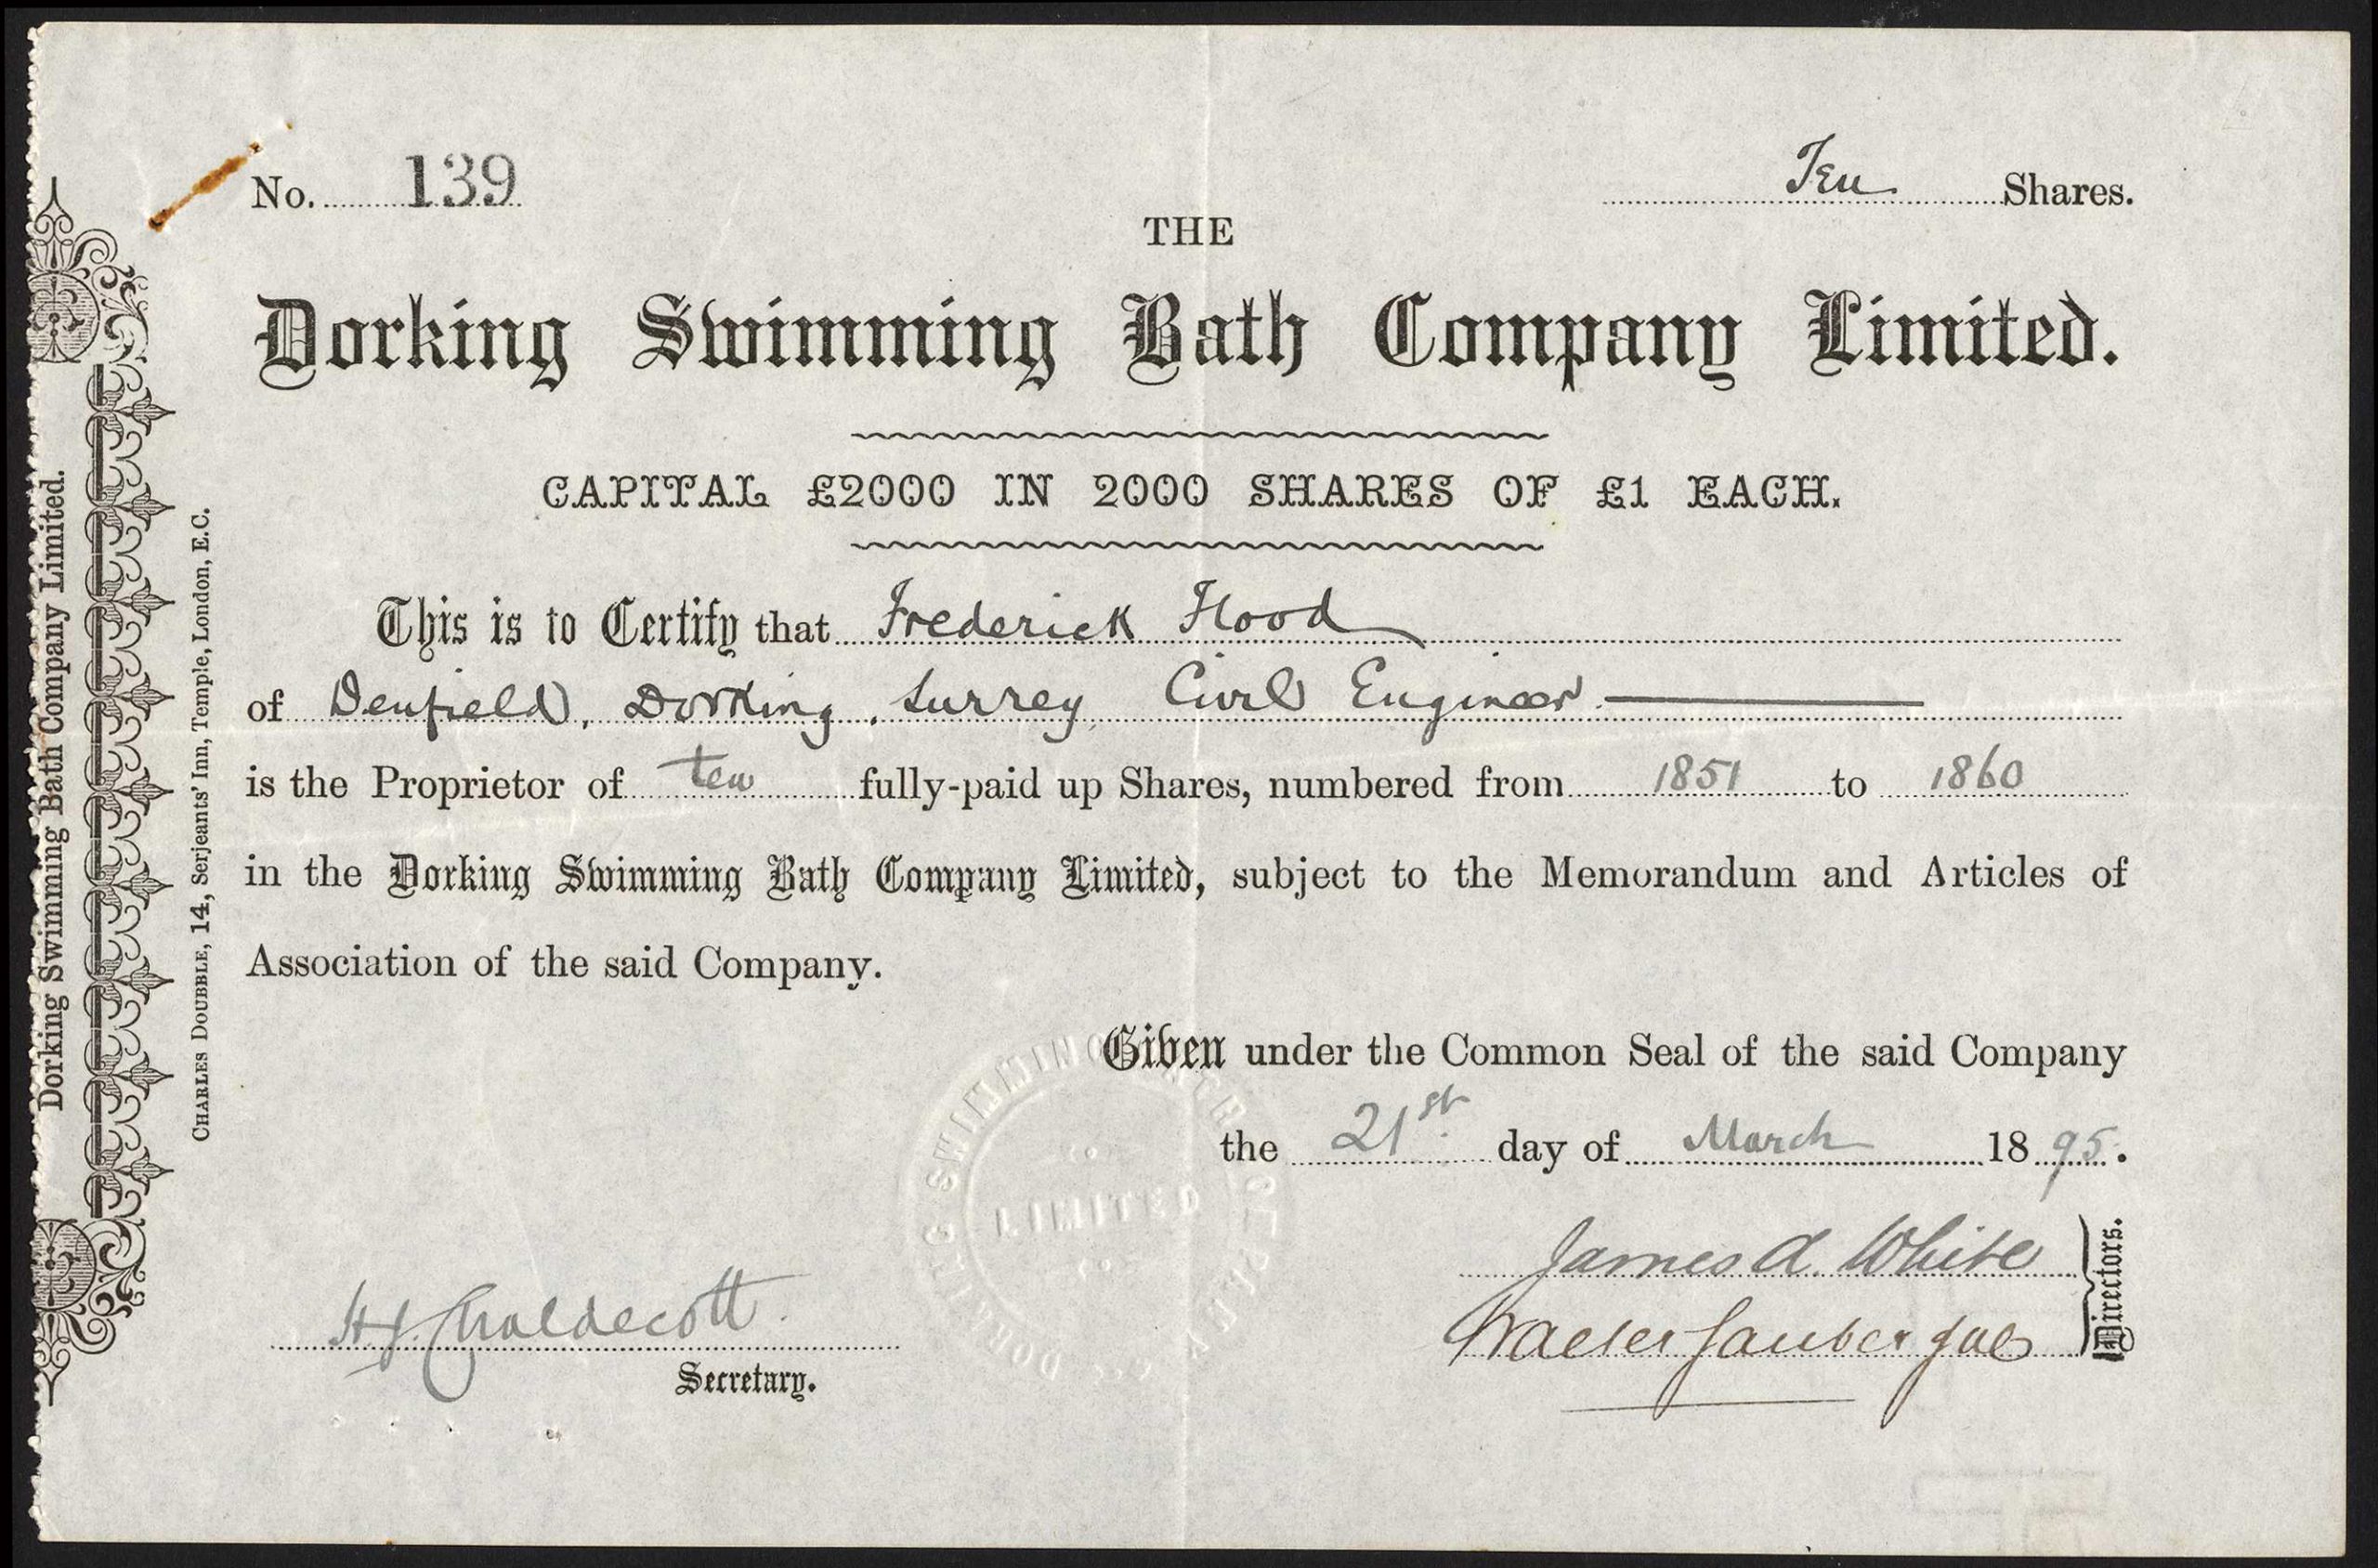 No. 139
Ten Shares.
THE
Dorking Swimming Bath Company Limited.
CAPITAL £2000 IN 2000 SHARES OF £1 EACH.
This is to Certify that Frederick Flood
of Denfield, Dorking, Surrey Civil Engineer
is the Proprietor of ten fully-paid up Shares, numbered from 1851 to 1860
in the Dorking Swimming Bath Company Limited, subject to the Memorandum and Articles of
Association of the said Company.
Given under the Common Seal of the said Company
the 21st day of March 1895.
James A. White
Walter
Directors.
H. J. Chaldecott.
Secretary.
DORKING SWIMMING BATH COMPANY
LIMITED
Dorking Swimming Bath Company Limited.
CHARLES DOUBBLE, 14, Serjeants' Inn, Temple, London, E.C.